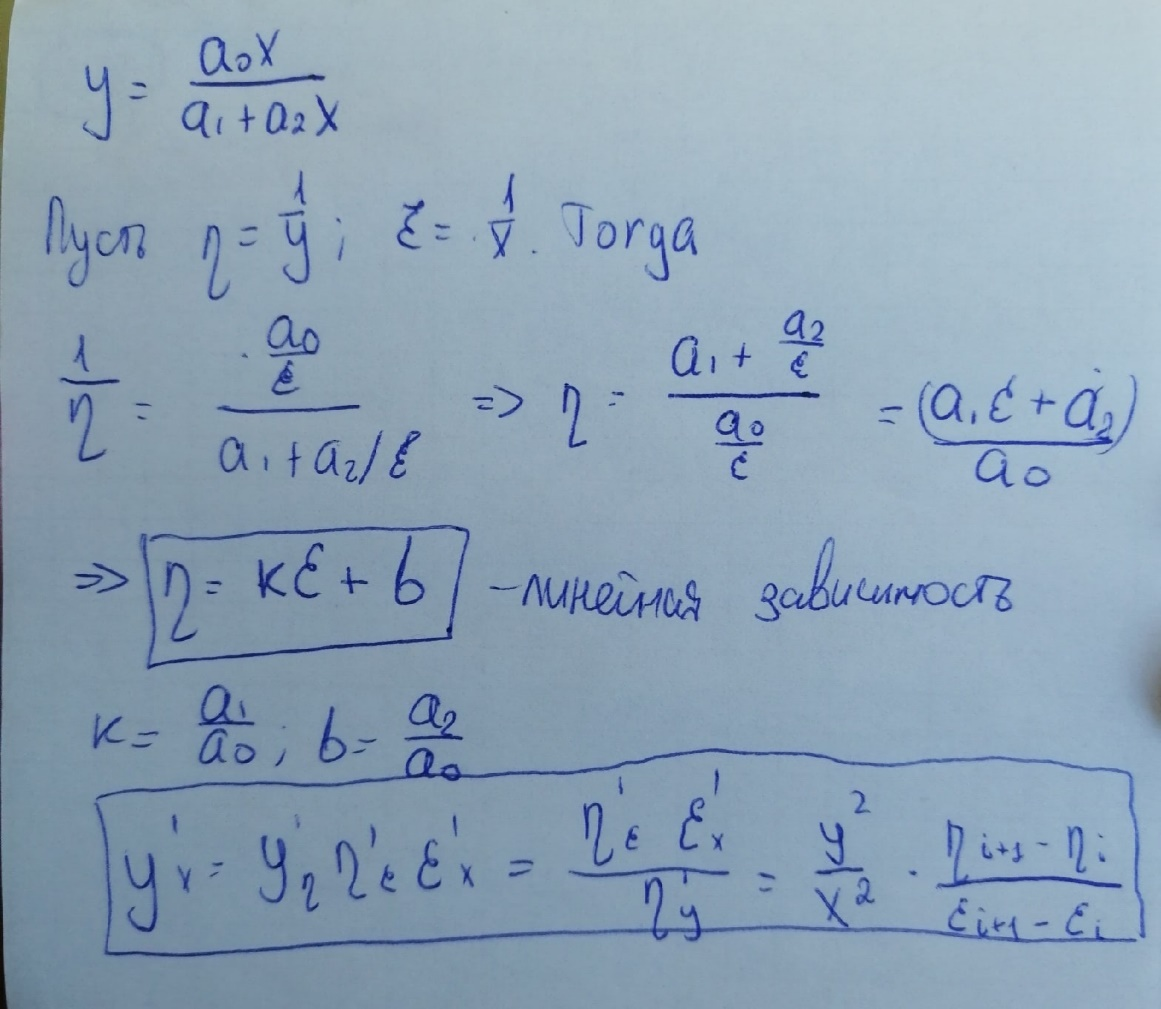 y = a₀x / (a₁ + a₂x)
Пусть η = 1/y; ξ = 1/x. Тогда
1/η = (a₀/ξ) / (a₁ + a₂/ξ) => η = (a₁ + a₂/ξ) / (a₀/ξ) = (a₁ξ + a₂) / a₀
=> η = kξ + b - линейная зависимость
k = a₁/a₀; b = a₂/a₀
y'ₓ = y'_η η'_ξ ξ'ₓ = (η'_ξ ξ'ₓ) / η'_y = y²/x² · (η_{i+1} - η_i) / (ξ_{i+1} - ξ_i)